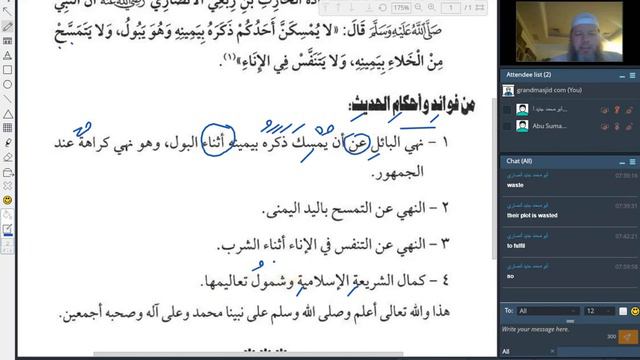 الحارث بن ربعي الأنصاري رضي الله عنه أن النبي
صَلَّىٰ اللَّهُ عَلَيْهِ وَسَلَّمَ قَالَ: «لَا يُمْسِكَنَّ أَحَدُكُمْ ذَكَرَهُ بِيَمِينِهِ وَهُوَ يَبُولُ، وَلَا يَتَمَسَّحْ
مِنَ الْخَلَاءِ بِيَمِينِهِ، وَلَا يَتَنَفَّسْ فِي الْإِنَاءِ»(١).
من فوائد وأحكام الحديث:
١ - نهي البائل عن أن يُمْسِكَ ذَكَرَهُ بيمينه أثناء البول، وهو نهي كراهة عند
الجمهور.
٢ - النهي عن التمسح باليد اليمنى.
٣ - النهي عن التنفس في الإناء أثناء الشرب.
٤ - كمال الشريعة الإسلامية وشمولُ تعاليمها.
هذا والله تعالى أعلم وصلى الله وسلم على نبينا محمد وعلى آله وصحبه أجمعين.
175%
1 / 1
Attendee list (2)
grandmasjid com (You)
Abu Suma...
Chat (All)
07:39:16
waste
07:39:31
their plot is wasted
07:42:21
to fulfil
07:59:58
no
To: All 12
Write your message here.
300
All